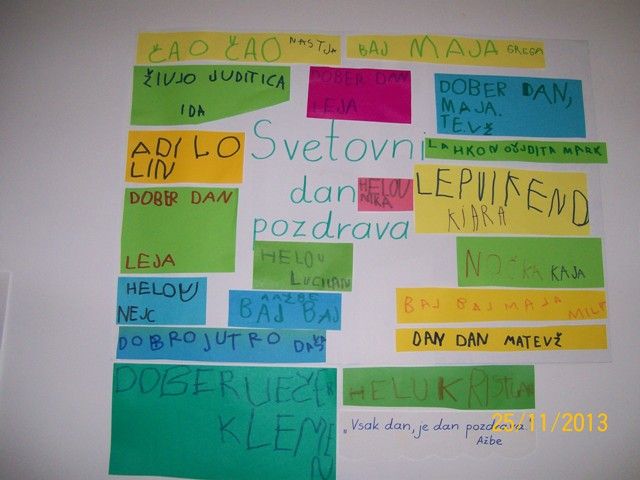 ČAO ČAO NASTJA
BAJ MAJA GREGA
ŽIVJO JUDITICA
IDA
DOBER DAN
LEJA
DOBER DAN,
MAJA.
TEVŽ
Svetovni
dan
pozdrava
ADI LO
LIN
LAHKO NOČ JUDITA MARK
HELOU
NIKA
LEPVIKEND
KIARA
DOBER DAN
LEJA
HELOU
NOČKA KAJA
HELOU
NEJC
AAŽBE
BAJ BAJ
BAJ BAJ MAJA
DOBROJUTRO
DAN DAN MATEVŽ
DOBER VEČER
KLEMEN
HELU KRISTIJAN
"Vsak dan, je dan pozdrava"
Ažbe
25/11/2013